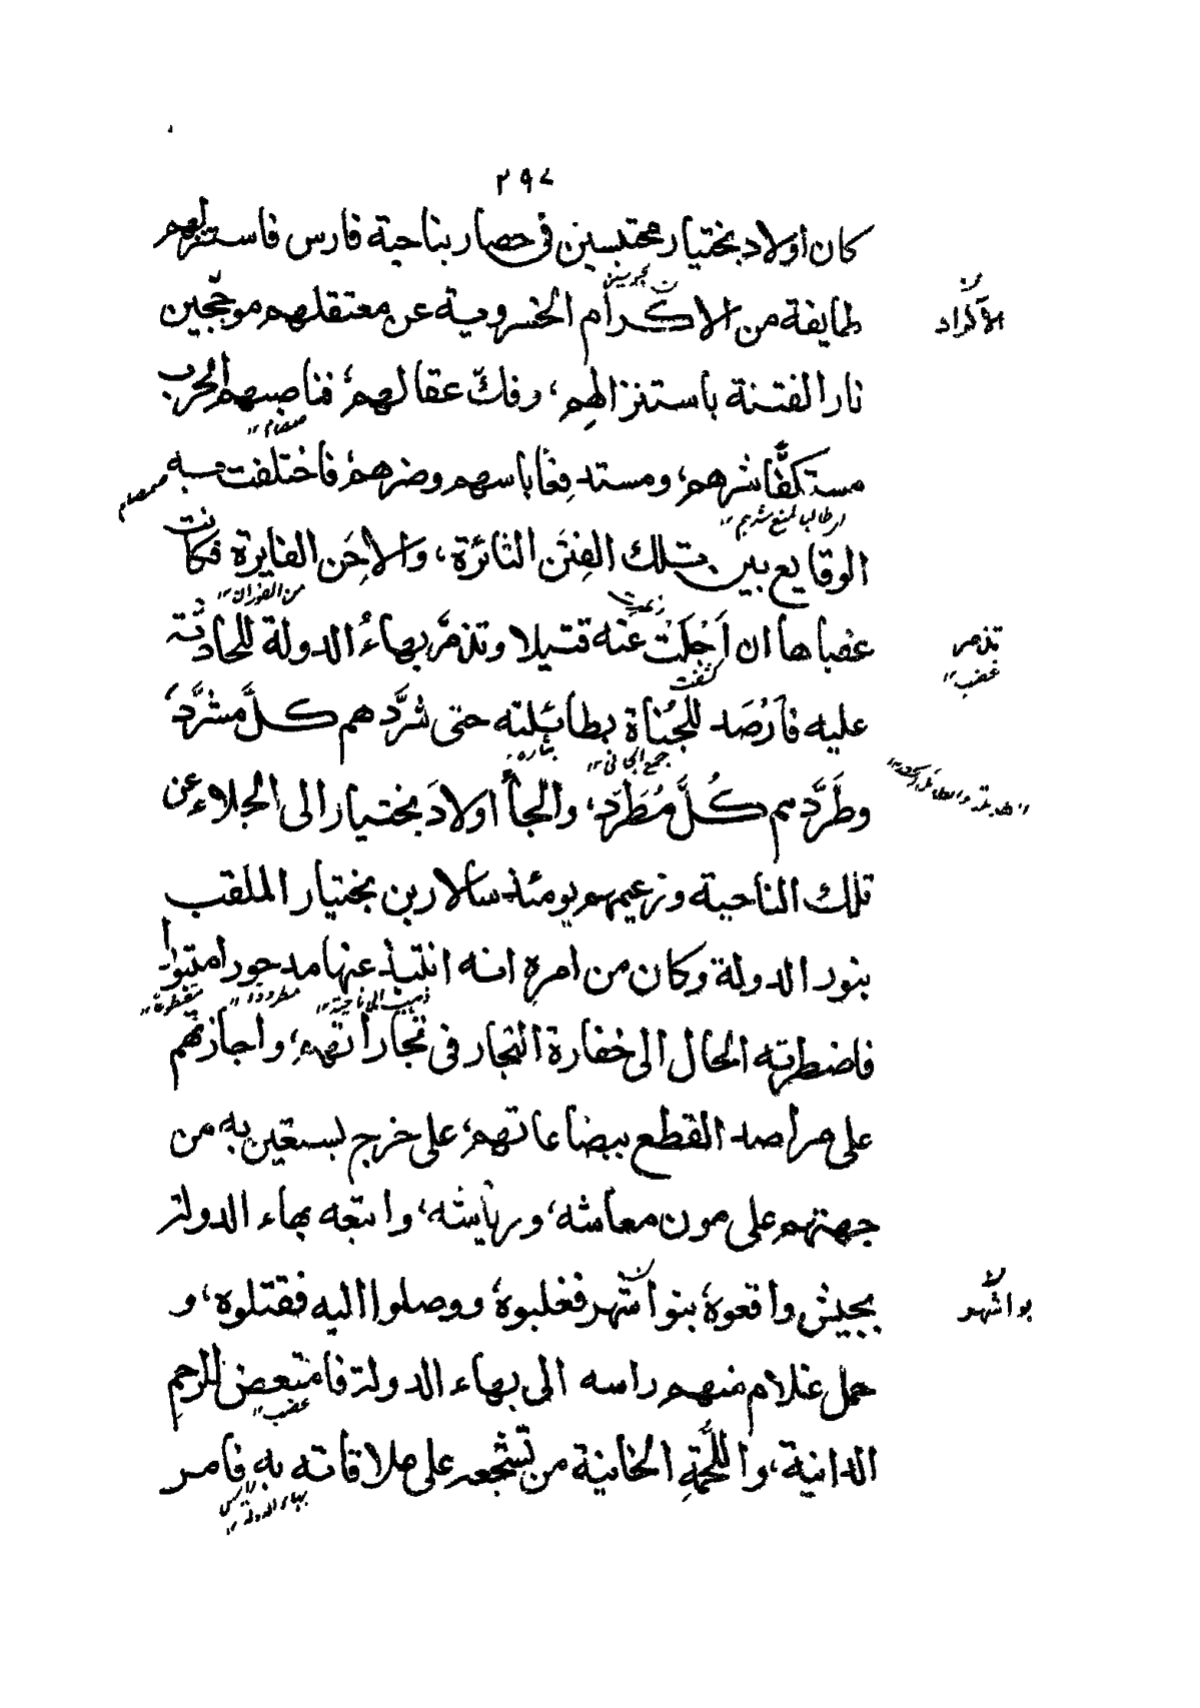 ٢٩٧
كان أولاد بختيار محتبسين فى حصار بناحية فارس فاستنزلهم
طايفة من الاكرام الخسروية عن معتقلهم موججين
الآكراد
نار الفتنة باستنزالهم، وفكّ عقالهم، فناصبهم الحرب
مستكفًّا شرهم، ومستدفعًا باسهم وضرهم فاختلفت به
صمصام
اى طالبا لمنع شرهم
الوقايع بين تلك الفِتَن الثائرة، والاِحَن الفايرة فكانت
من الفوران
عقباها ان اَجْلَتْ عنه قتيلا وتذمَّر بهاءُ الدولة للحادثة
تذمر
غضب
كشفت
عليه فاَرْصَد للجُناة بطائلته حتى شرَّدهم كلَّ مشرَّد،
جمع الجانى
بثاره
وطَرَّدهم كُلَّ مُطَرَّد، والجأ اولادَ بختيار الى الجلاء عن
تلك الناحية وزعيمهم يومئذ سالار بن بختيار الملقب
بنور الدولة وكان من امره انه انتبذ عنها مدحورا مبتوا
ذهب الى ناحية
مطرودا
فاضطرته الحال الى خفارة التجار فى تجاراتهم، واجازتهم
على مراصد القطع ببضاعاتهم، على خرج يستعين به من
جهتهم على مون معاشه، ورياشه، واتبعه بهاء الدولة
بجيش واقعوه بنو اشهر فغلبوه، ووصلوا اليه فقتلوه، و
بو اشهر
حمل غلام منهم راسه الى بهاء الدولة فامتعض للرحم
غضب
الدانية، واللُّحمةِ الخانية من تشجعه على ملاقاته به فامر
بهاء الدولة